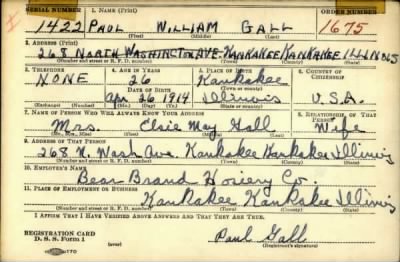 SERIAL NUMBER 1. NAME (Print) ORDER NUMBER
1422 PAUL WILLIAM GALL 1675
2. ADDRESS (Print)
268 NORTH WASHINGTON AVE. KANKAKEE KANKAKEE ILLINOIS
(Number and street or R. F. D. number) (Town) (County) (State)
3. TELEPHONE 4. AGE IN YEARS 5. PLACE OF BIRTH 6. COUNTRY OF CITIZENSHIP
NONE 26 Kankakee
DATE OF BIRTH (Town or county)
Apr 26 1914 Illinois U.S.A.
(Exchange) (Number) (Mo.) (Day) (Yr.) (State or country)
7. NAME OF PERSON WHO WILL ALWAYS KNOW YOUR ADDRESS 8. RELATIONSHIP OF THAT PERSON
Mrs. Elsie May Gall Wife
(Mr., Mrs., Miss) (First) (Middle) (Last)
9. ADDRESS OF THAT PERSON
268 N. Wash Ave. Kankakee Kankakee Illinois
(Number and street or R. F. D. number) (Town) (County) (State)
10. EMPLOYER'S NAME
Bear Brand Hosiery Co.
11. PLACE OF EMPLOYMENT OR BUSINESS
Kankakee Kankakee Illinois
(Number and street or R. F. D. number) (Town) (County) (State)
I AFFIRM THAT I HAVE VERIFIED ABOVE ANSWERS AND THAT THEY ARE TRUE.
REGISTRATION CARD
D. S. S. Form 1 (over) Paul Gall
(Registrant's signature)